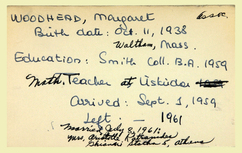 WOODHEAD, Margaret Assoc.
Birth date: Oct. 11, 1938
Waltham, Mass.
Education: Smith Coll. B.A. 1959
Math. Teacher at
Arrived: Sept. 1, 1959
Left: — 1961
Married July 8, 1961:
Mrs. Aristotle
5, Athens